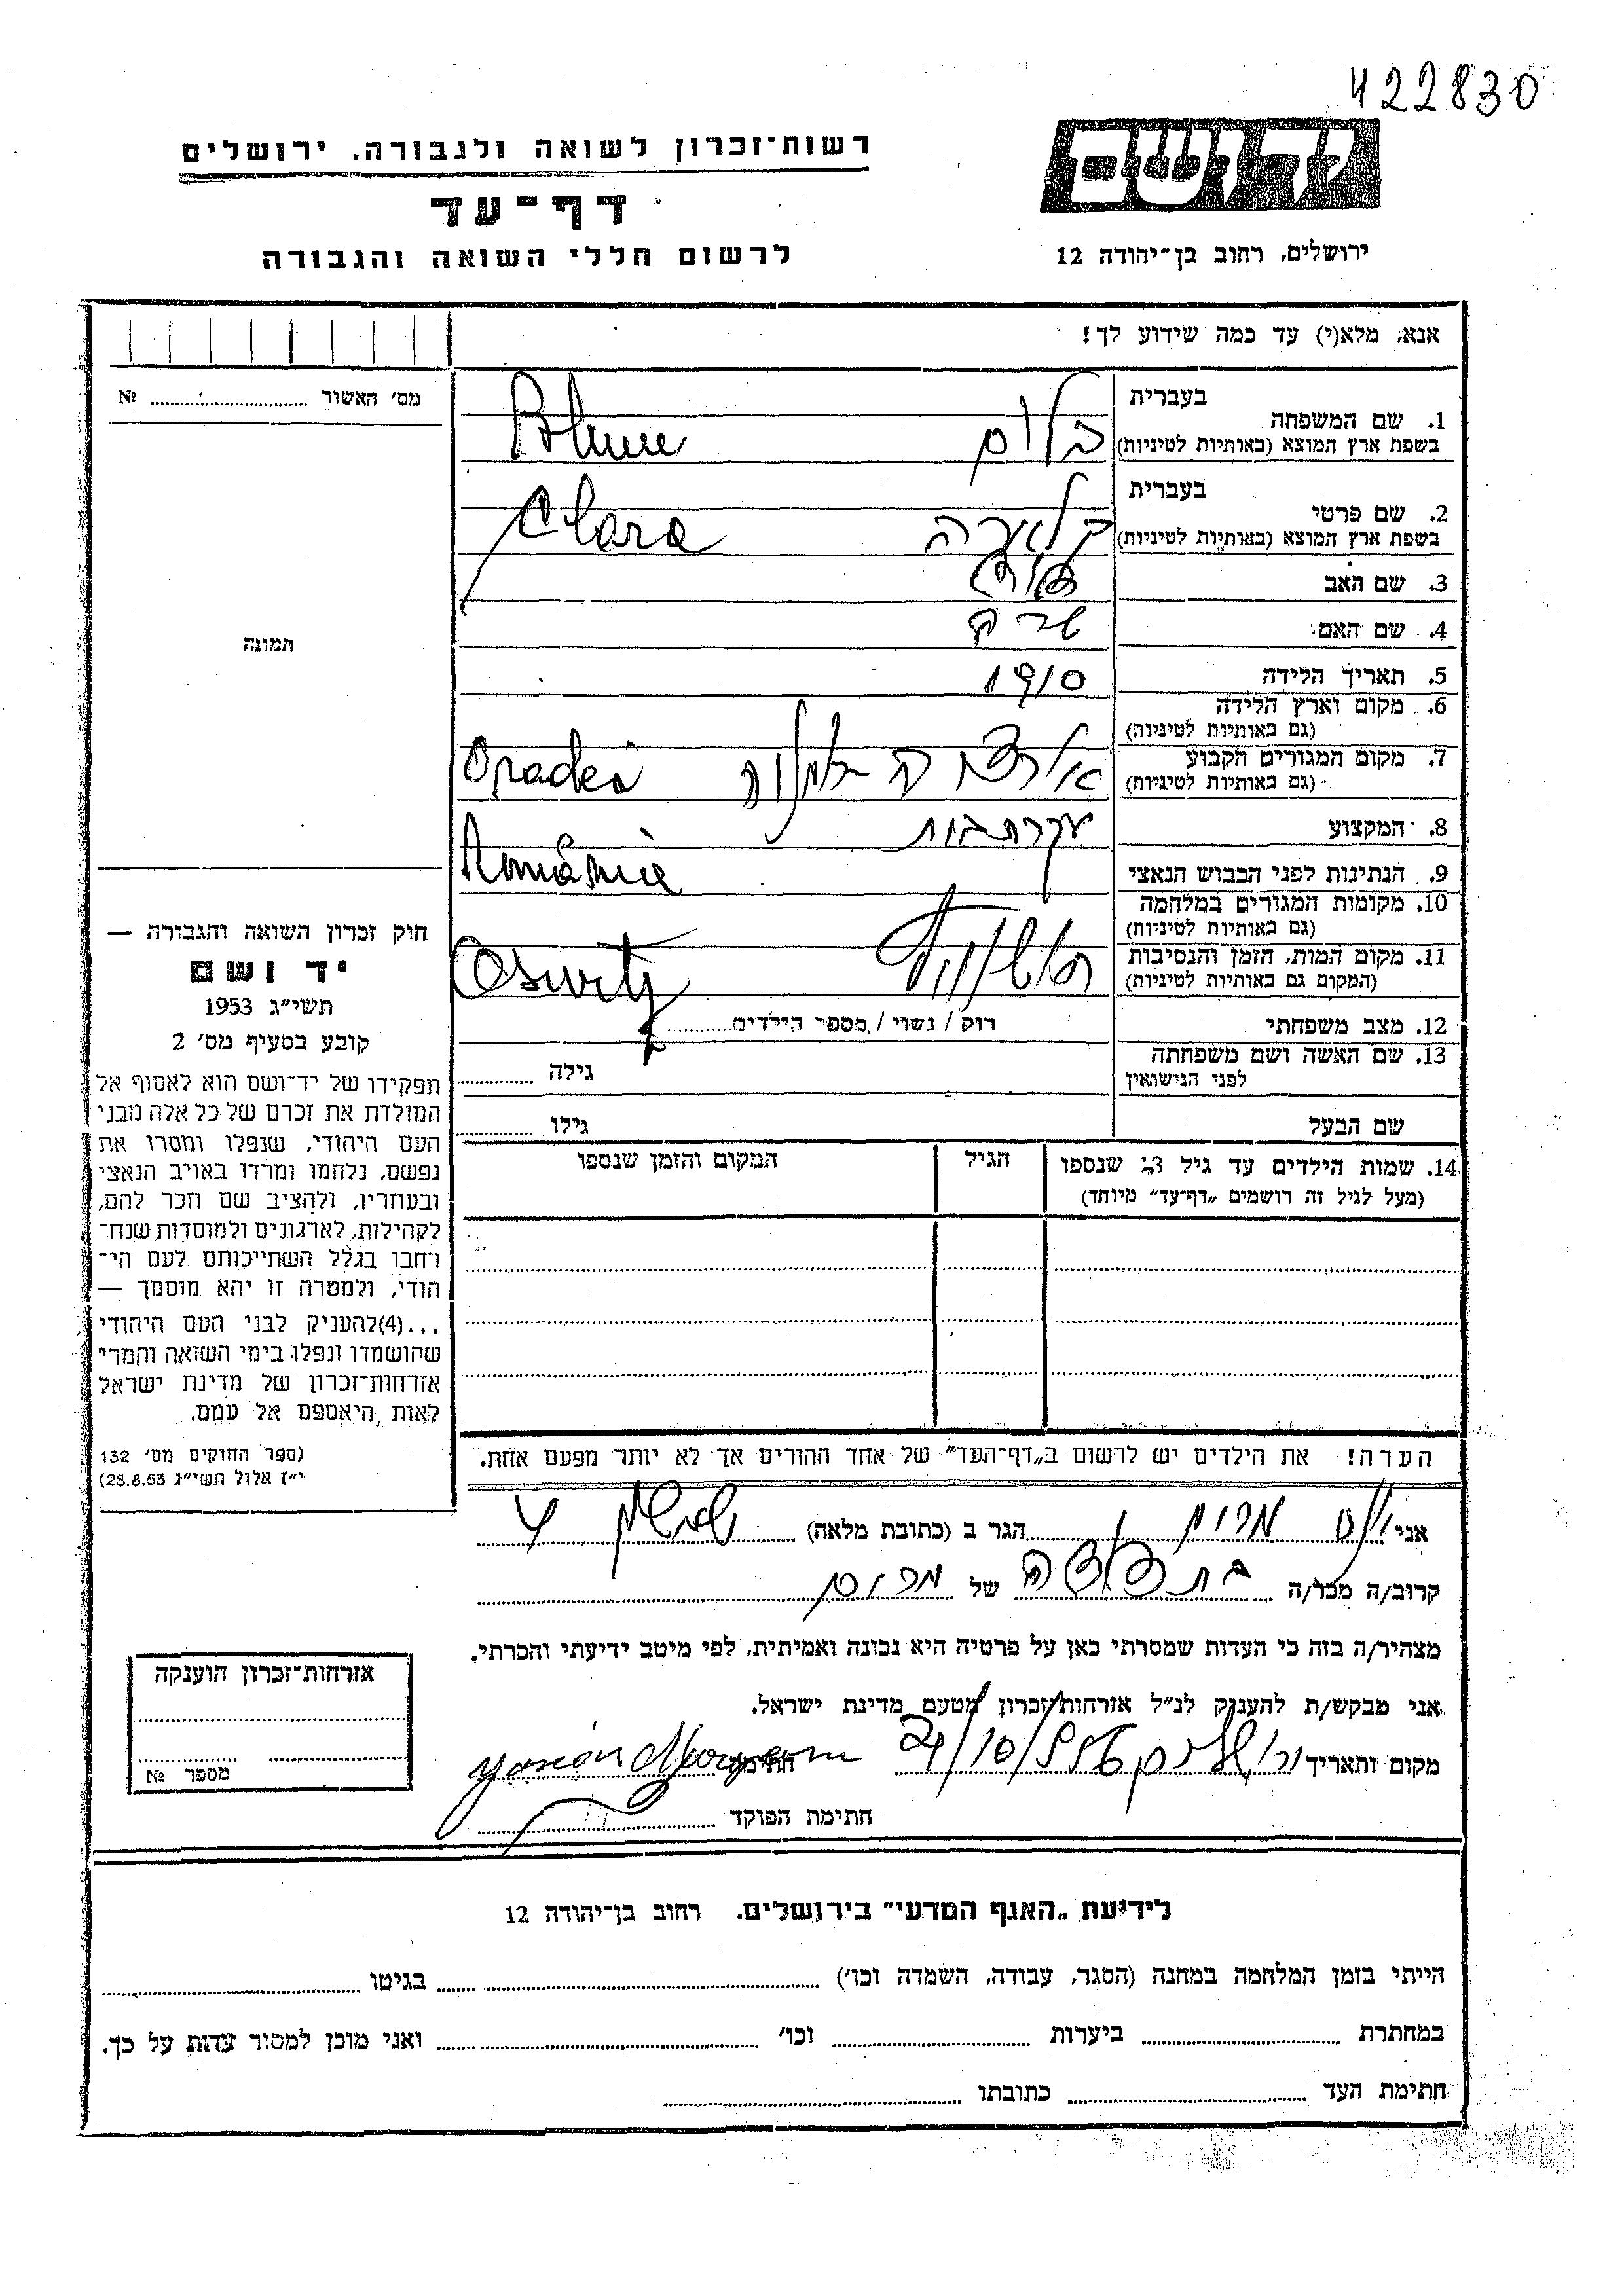 422830
יד ושם
רשות־זכרון לשואה ולגבורה, ירושלים
דף־עד
לרשום חללי השואה והגבורה
ירושלים, רחוב בן־יהודה 12
אנא, מלא(י) עד כמה שידוע לך!
מס׳ האשור № ......
תמונה
בעברית
1. שם המשפחה
בשפת ארץ המוצא (באותיות לטיניות)
בלום Blum
בעברית
2. שם פרטי
בשפת ארץ המוצא (באותיות לטיניות)
קלארה Clara
3. שם האב
4. שם האם שרה
5. תאריך הלידה 1910
6. מקום וארץ הלידה
(גם באותיות לטיניות)
7. מקום המגורים הקבוע
(גם באותיות לטיניות)
Oradea
8. המקצוע עקרת בית
9. הנתינות לפני הכבוש הנאצי România
10. מקומות המגורים במלחמה
(גם באותיות לטיניות)
11. מקום המות, הזמן והנסיבות
(המקום גם באותיות לטיניות)
Oswitz
12. מצב משפחתי רוק / נשוי / מספר הילדים ......
13. שם האשה ושם משפחתה
לפני הנישואין
גילה ......
שם הבעל גילו ......
14. שמות הילדים עד גיל 13 שנספו
(מעל לגיל זה רושמים „דף־עד” מיוחד)
הגיל
המקום והזמן שנספו
חוק זכרון השואה והגבורה —
יד ושם
תשי״ג 1953
קובע בסעיף מס׳ 2
תפקידו של יד־ושם הוא לאסוף אל
המולדת את זכרם של כל אלה מבני
העם היהודי, שנפלו ומסרו את
נפשם, נלחמו ומרדו באויב הנאצי
ובעוזריו, ולהציב שם וזכר להם,
לקהילות, לארגונים ולמוסדות שנח־
רחבו בגלל השתייכותם לעם הי־
הודי, ולמטרה זו יהא מוסמך —
...(4) להעניק לבני העם היהודי
שהושמדו ונפלו בימי השואה והמרי
אזרחות־זכרון של מדינת ישראל
לאות היאספם אל עמם.
(ספר החוקים מס׳ 132
י״ז אלול תשי״ג 28.8.53)
הערה! את הילדים יש לרשום ב„דף־העד” של אחד ההורים אך לא יותר מפעם אחת.
אני מרום הגר ב (כתובת מלאה)
קרוב/ה מכר/ה בת דודה של מרום
מצהיר/ה בזה כי העדות שמסרתי כאן על פרטיה היא נכונה ואמיתית, לפי מיטב ידיעתי והכרתי.
אני מבקש/ת להעניק לנ״ל אזרחות/זכרון מטעם מדינת ישראל.
מקום ותאריך חתימה
חתימת הפוקד
אזרחות־זכרון הוענקה
מספר №
לידיעת „האגף המדעי” בירושלים, רחוב בן־יהודה 12
הייתי בזמן המלחמה במחנה (הסגר, עבודה, השמדה וכו׳) ...... בגיטו ......
במחתרת ...... ביערות ...... וכו׳ ...... ואני מוכן למסיר עדות על כך.
חתימת העד ...... כתובתו ......